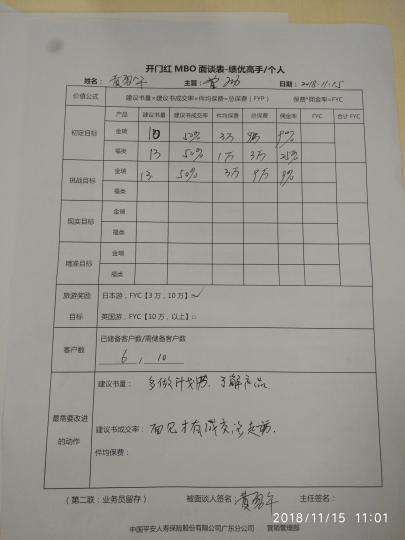 开门红 MBO 面谈表-绩优高手/个人
姓名： 主管： 日期：2018.11.15
价值公式 建议书量*建议书成交率*件均保费=总保费（FYP） 保费*佣金率=FYC
产品 建议书量 建议书成交率 件均保费 总保费 佣金率 FYC 合计 FYC
初定目标 金瑞 10 50% 3万 9%
福类 13 50% 1万 3万 25%
挑战目标 金瑞 13 50% 3万 9万 9%
福类
现实目标 金瑞
福类
精准目标 金瑞
福类
旅游奖励 日本游，FYC【3 万，10 万】
目标 英国游，FYC【10 万，以上】□
客户数 已储备客户数/需储备客户数
6 , 10
最需要改进的动作 建议书量： 多做计划书、了解产品.
建议书成交率： 面见才有成交
件均保费：
（第二联：业务员留存） 被面谈人签名： 主任签名：
中国平安人寿保险股份有限公司广东分公司 营销管理部
2018/11/15 11:01